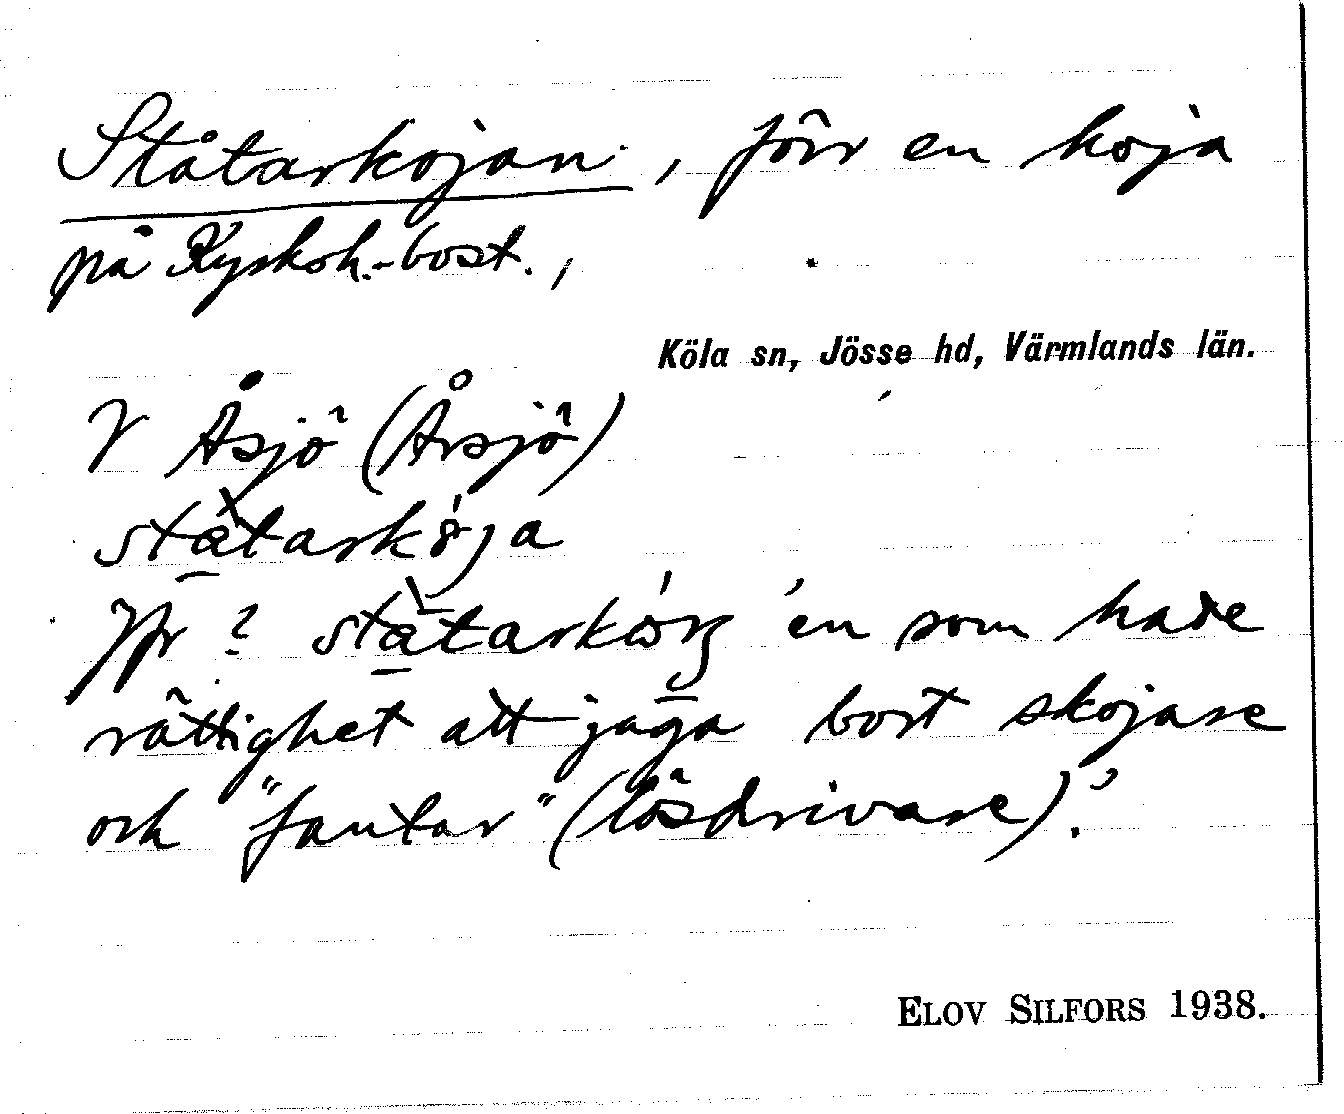 Ståtarkojan, förr en koja
på Kyrksk.-bost.,
Köla sn, Jösse hd, Värmlands län.
V Åsjö (Årsjö)
ståtarkȯja
Jfr ? ståtarkȯrʒ 'en som hade
rättighet att jaga bort skojare
och "fantar" (lösdrivare).'
ELOV SILFORS 1938.